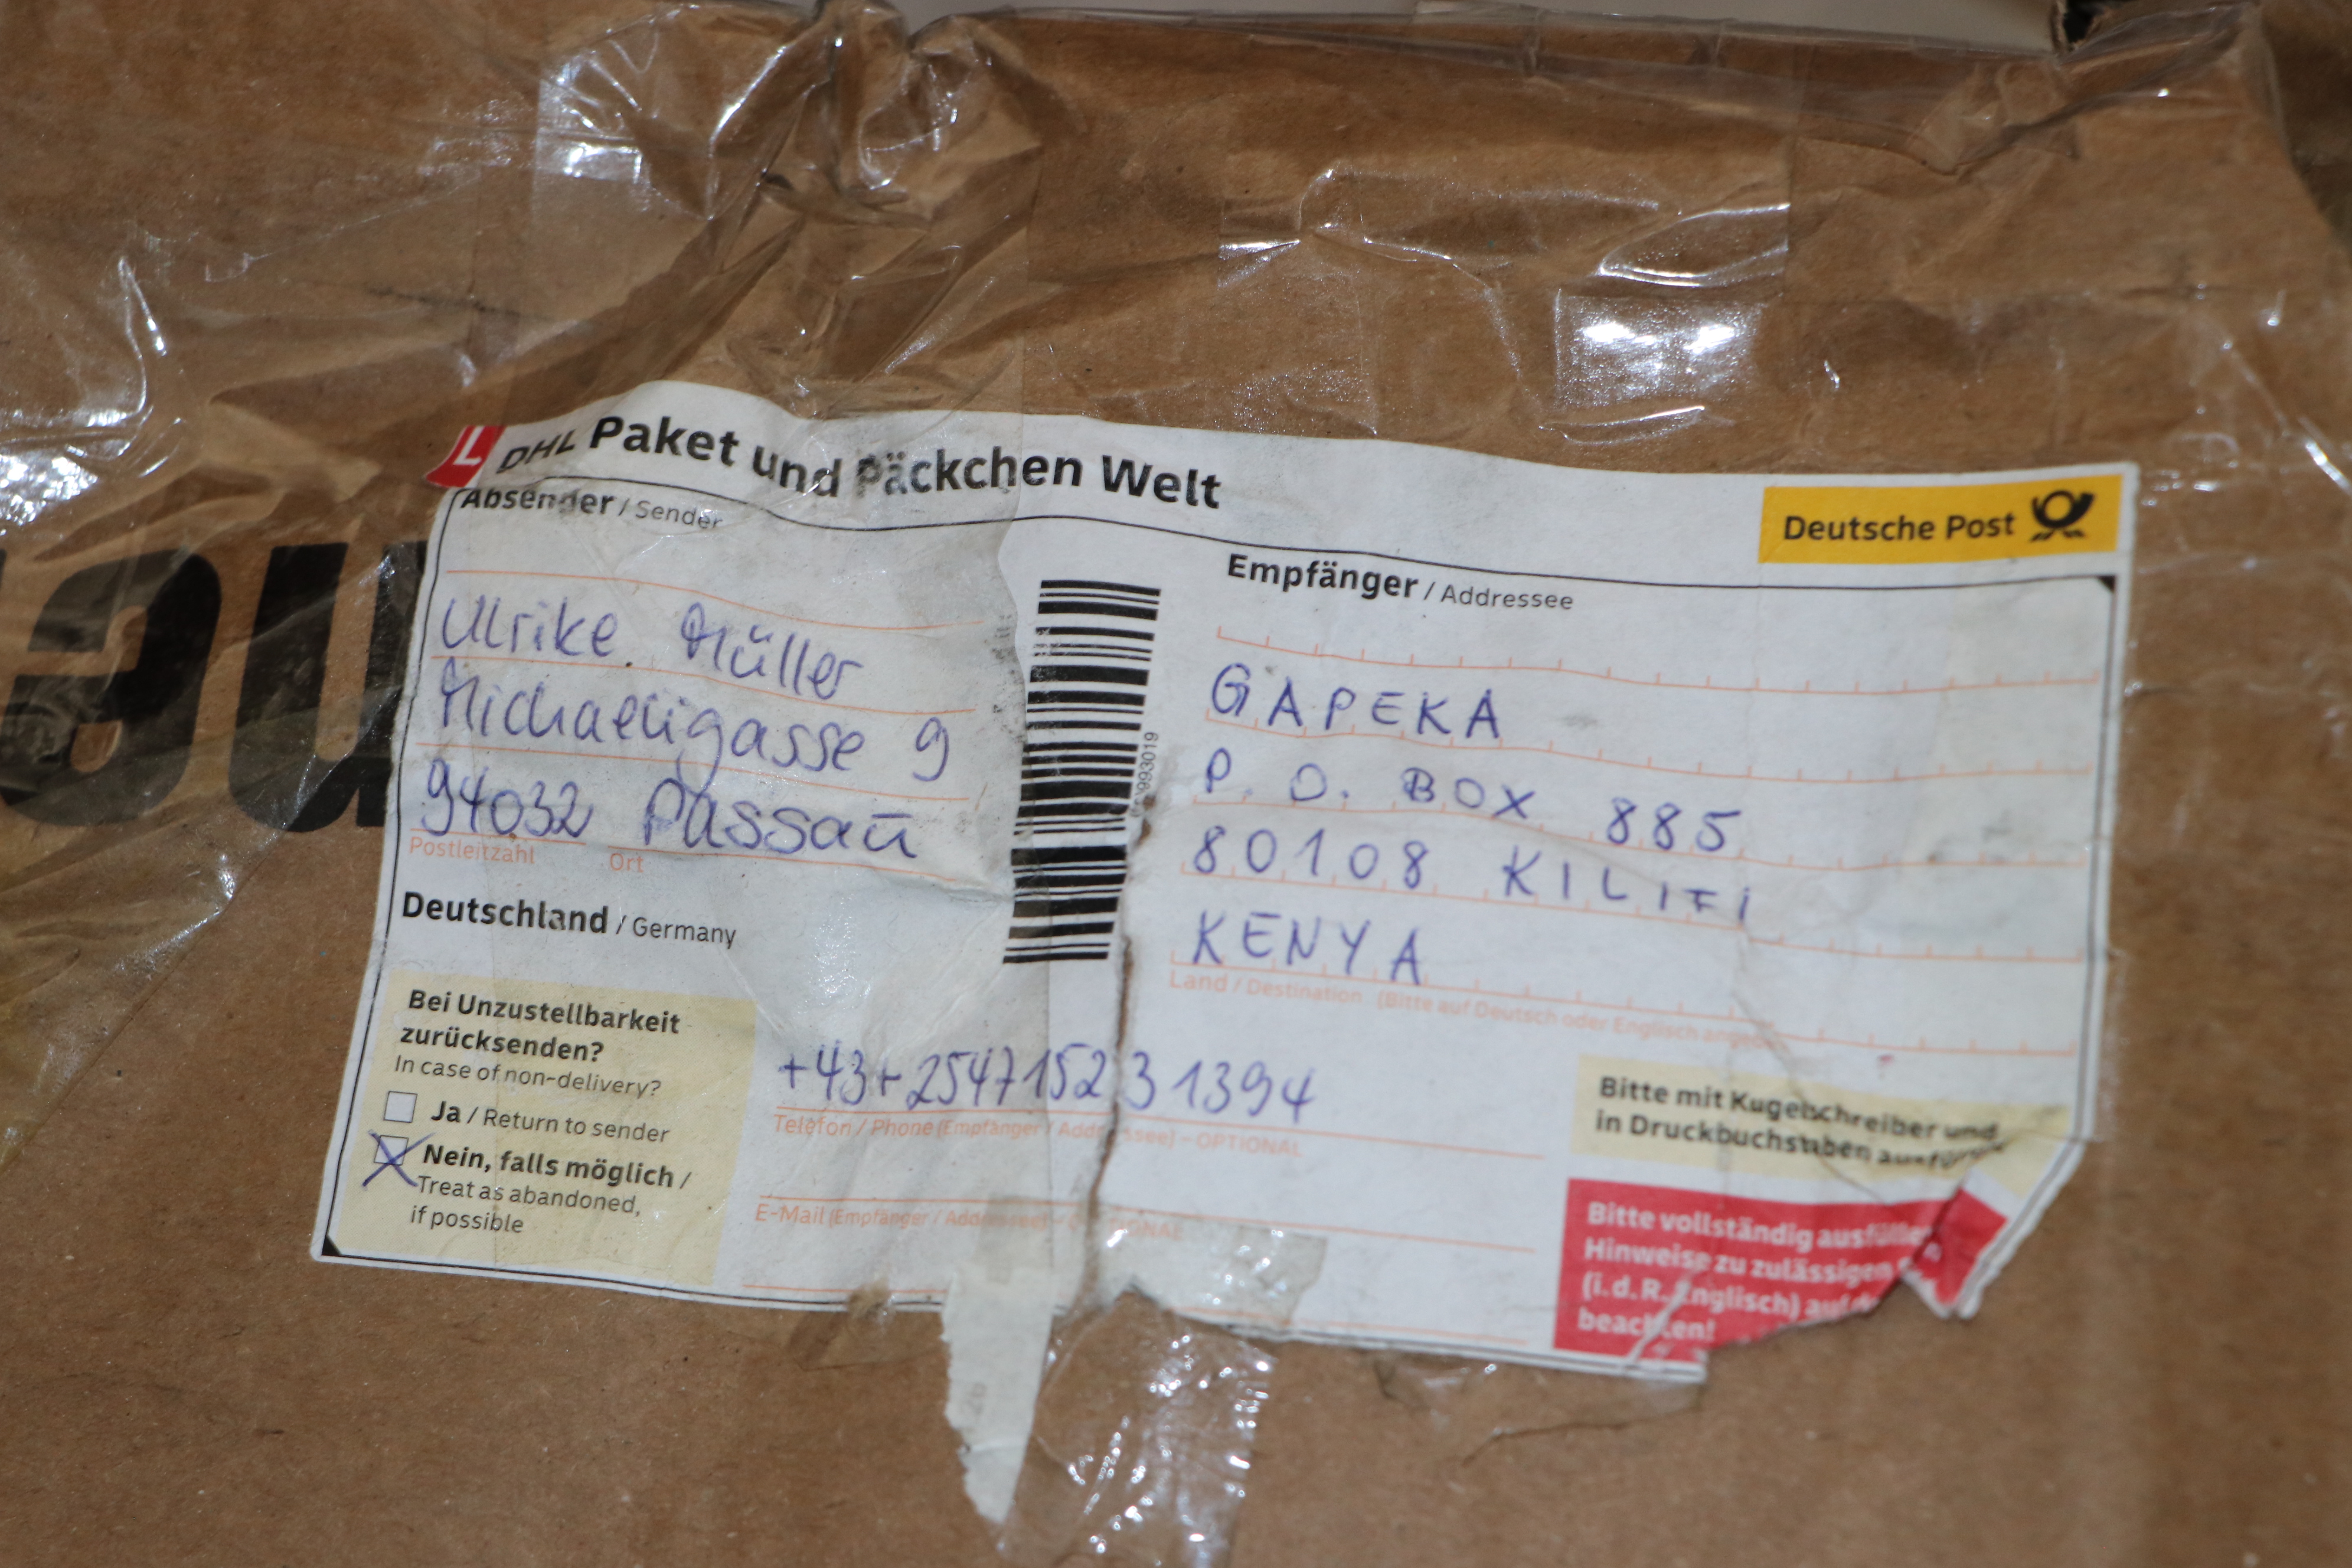 L DHL Paket und Päckchen Welt
Deutsche Post
Absender / Sender
Ulrike Müller
Michaeligasse 9
94032 Passau
Postleitzahl Ort
Deutschland / Germany
Bei Unzustellbarkeit
zurücksenden?
In case of non-delivery?
Ja / Return to sender
Nein, falls möglich /
Treat as abandoned,
if possible
993019
Empfänger / Addressee
GAPEKA
P.O. BOX 885
80108 KILIFI
KENYA
Land / Destination (Bitte auf Deutsch oder Englisch
+43+254715231394
Telefon / Phone (Empfänger / Addressee) - OPTIONAL
E-Mail (Empfänger / Addressee) - OPTIONAL
Bitte mit Kugelschreiber und
in Druckbuchstaben
Bitte vollständig ausfüllen
Hinweise zu zulässigen
(i.d.R. Englisch)
beachten!